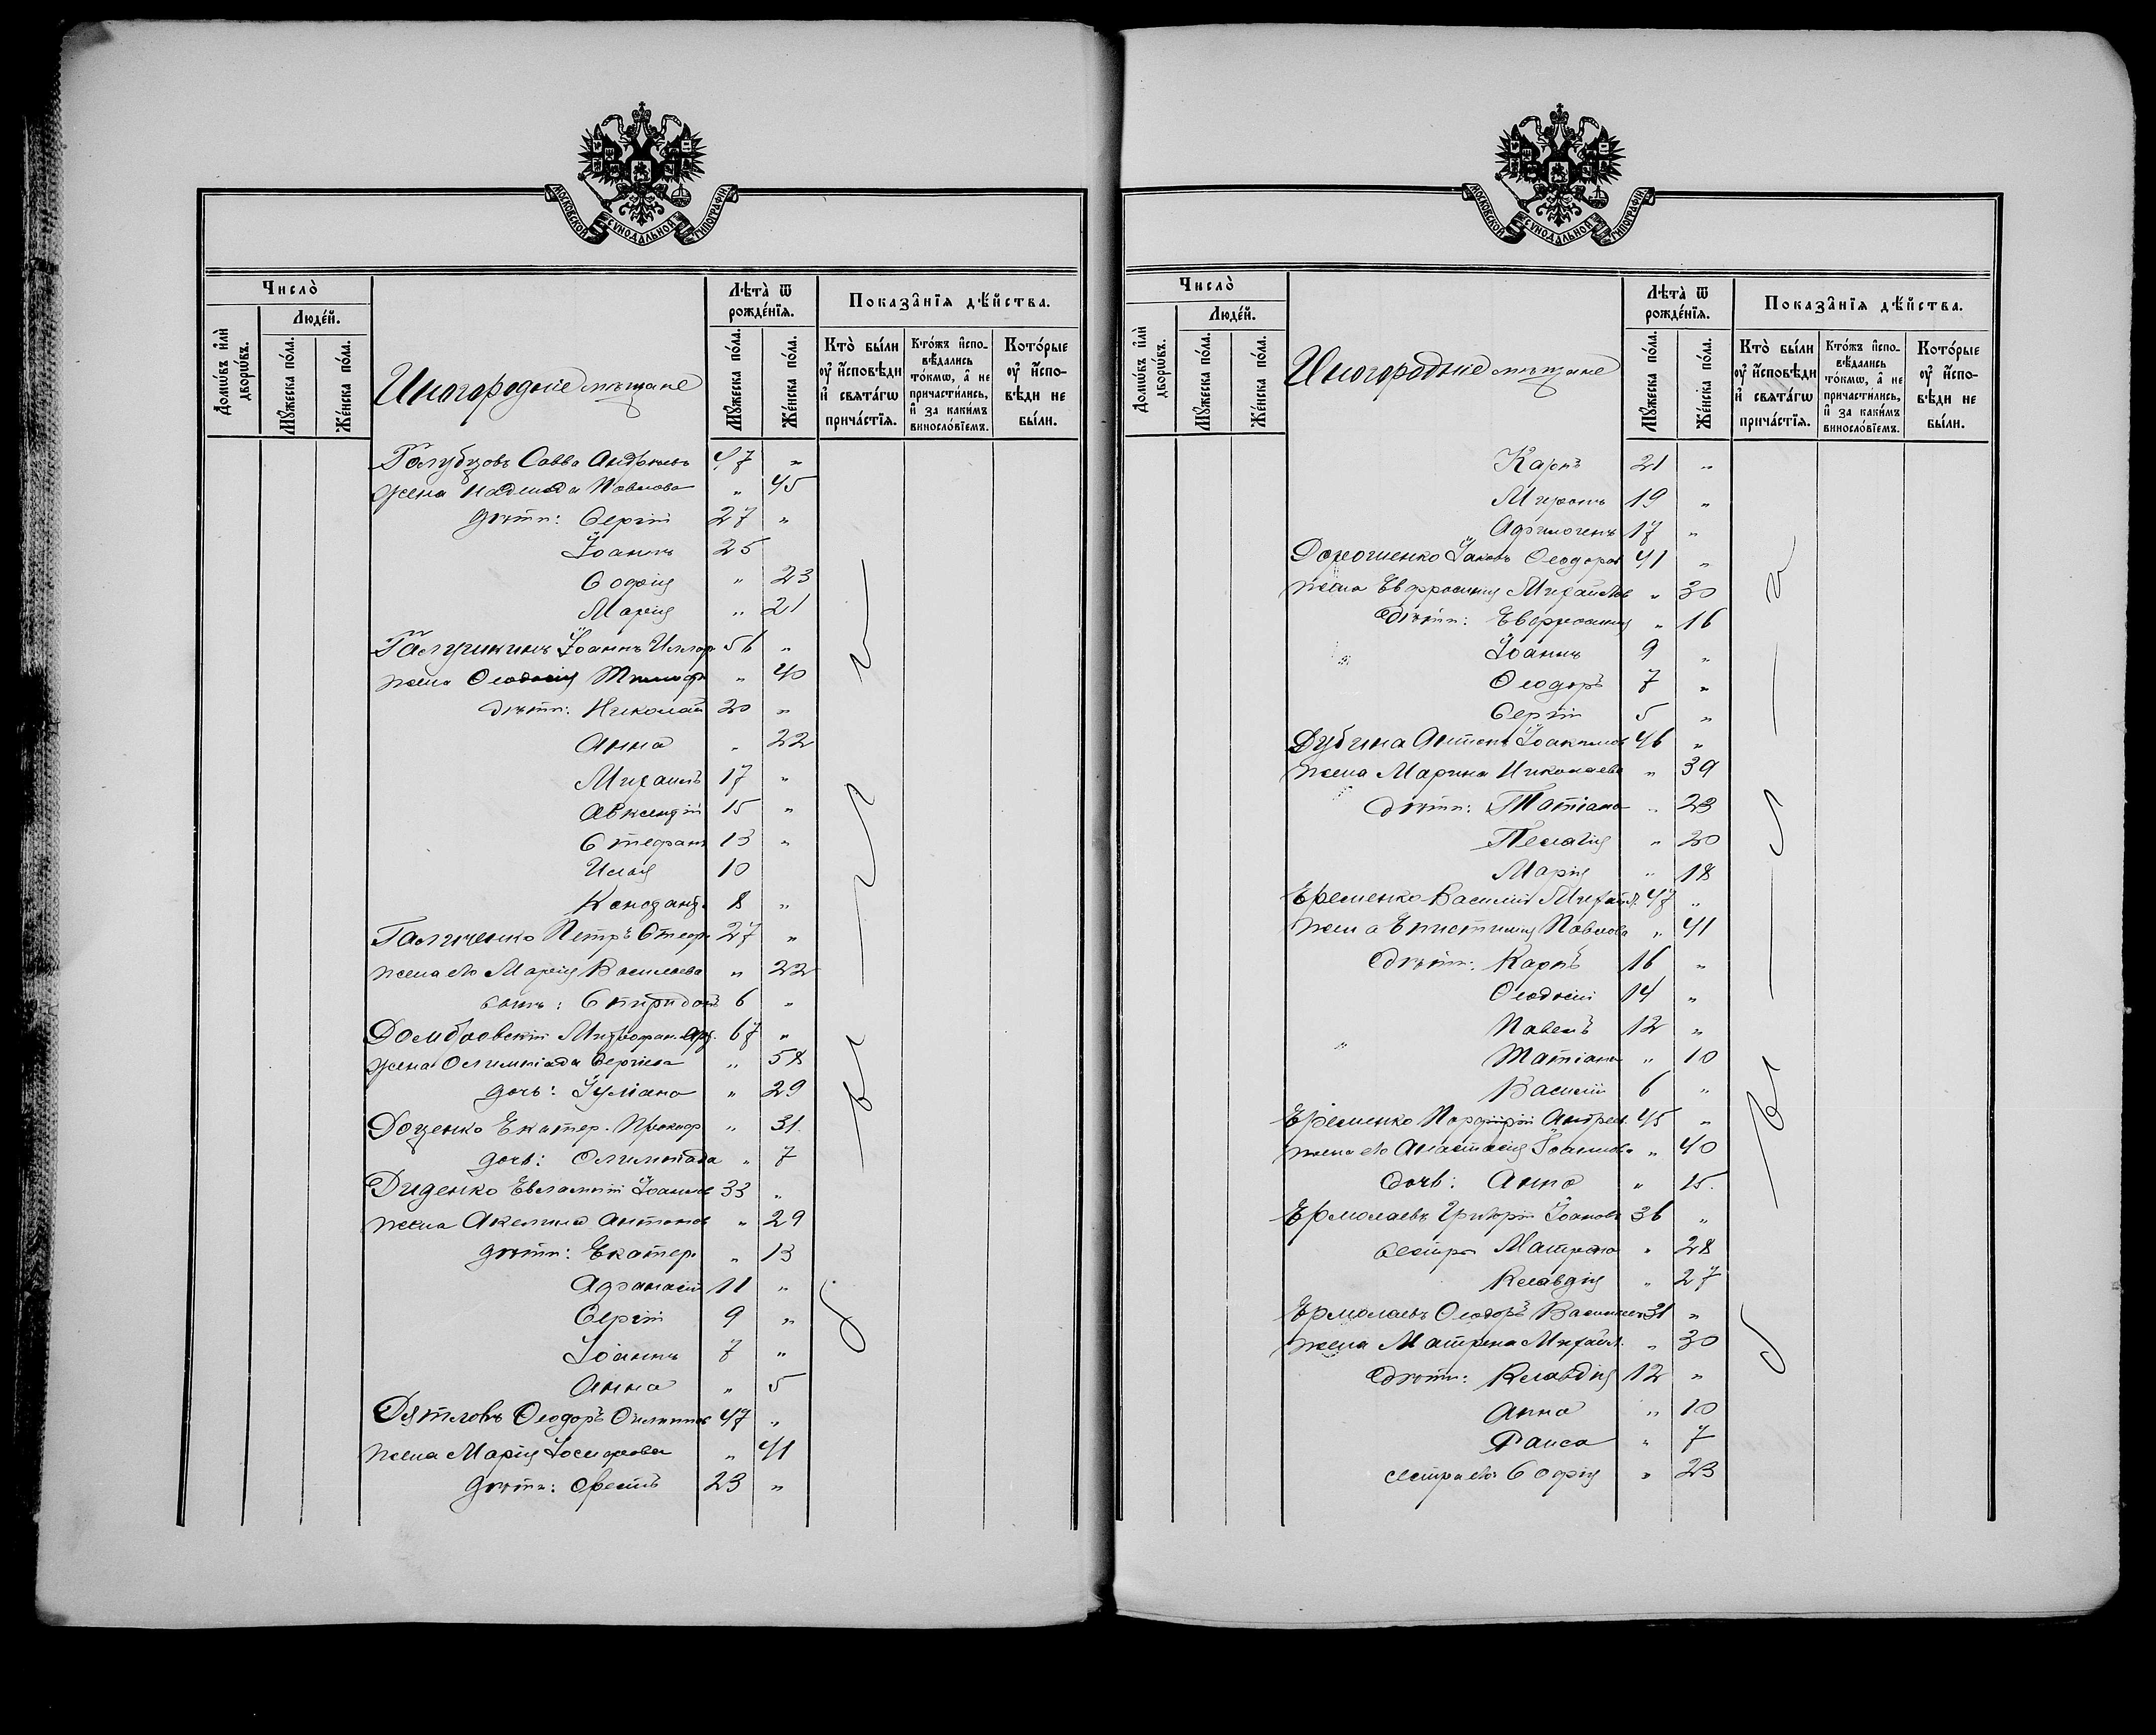 МОСКОВСКОЙ СѴНОДАЛЬНОЙ ТИПОГРАФІИ
Число̀
Людей.
Домѡвъ и҆лѝ дворѡвъ.
Мꙋжеска по́ла.
Же́нска по́ла.
Иногородные мѣщане
Лѣта̀ ѿ рожде́нїѧ.
Мꙋжеска по́ла.
Же́нска по́ла.
Показа̂нїѧ дѣ́йства.
Кто̀ бы́ли оу҆ и҆сповѣди и҆ свѧта́гѡ прича́стїѧ.
Кто́жъ и҆сповѣ́дались то́кмѡ, а҆ не причасти́лись, и҆ за каки́мъ винослові́емъ.
Кото́рые оу҆ и҆сповѣди не бы́ли.
Голубцовъ Савва Андреевъ 47 "
жена Надежда Павлова " 45
дѣти: Сергій 27 "
Іоаннъ 25
Софія " 23
Марія " 21
Галушкинъ Іоаннъ Иллар 56 "
жена Ѳеодосія " 40
дѣти: Николай 20 "
Анна " 22
Михаилъ 17 "
Авксентій 15 "
Стефанъ 13 "
Илія 10
Констант. 8 "
Галиченко Петръ Стеф. 27 "
жена его Марія Васильева " 22
сынъ: Спиридонъ 6 "
Домбровскій Митрофан. 67 "
жена Олимпіада Сергіева " 58
дочь: Іуліана " 29
Доценко Екатер. Прокоф " 31.
дочь: Олимпіада " 7
Диденко Евлампій Іоаннов 33 "
жена Акелина Антонов " 29
дѣти: Екатер. " 13
Афанасій 11 "
Сергій 9 "
Іоаннъ 7 "
Анна " 5
Дятловъ Ѳеодоръ Филиппов 47 "
жена Марія Іосифова " 41
дѣти: Орестъ 23 "
были
МОСКОВСКОЙ СѴНОДАЛЬНОЙ ТИПОГРАФІИ
Число̀
Людей.
Домѡвъ и҆лѝ дворѡвъ.
Мꙋжеска по́ла.
Же́нска по́ла.
Иногородные мѣщане
Лѣта̀ ѿ рожде́нїѧ.
Мꙋжеска по́ла.
Же́нска по́ла.
Показа̂нїѧ дѣ́йства.
Кто̀ бы́ли оу҆ и҆сповѣди и҆ свѧта́гѡ прича́стїѧ.
Кто́жъ и҆сповѣ́дались то́кмѡ, а҆ не причасти́лись, и҆ за каки́мъ винослові́емъ.
Кото́рые оу҆ и҆сповѣди не бы́ли.
Карпъ 21 "
Миронъ 19 "
Афиногенъ 17 "
Дорошенко Іаковъ Ѳеодоров 41 "
жена Евфросинія Михайлов " 30
дѣти: Евфросинія " 16
Іоаннъ 9 "
Ѳеодоръ 7 "
Сергій 5 "
Дубина Антонъ Іоакимов 46 "
жена Марина Николаева " 39
дѣти: Татіана " 23
Пелагія " 20
Марія " 18
Еременко Василій Михайл. 47 "
жена Епистимія Павлова " 41
дѣти: Карпъ 16 "
Ѳеодосій 14 "
Павелъ 12 "
Татіана " 10
Василій 6 "
Еременко Порфирій Андреев. 45 "
жена его Анастасія Іоаннова " 40
дочь: Анна " 15.
Ермолаевъ Григорій Іоаннов 36 "
сестра Матрона " 28
Клавдія " 27
Ермолаевъ Ѳеодоръ Васильев 31 "
жена Матрена Михайл. " 30
дѣти: Клавдія 12 "
Анна " 10
Раиса " 7
сестра его Софія " 23
были